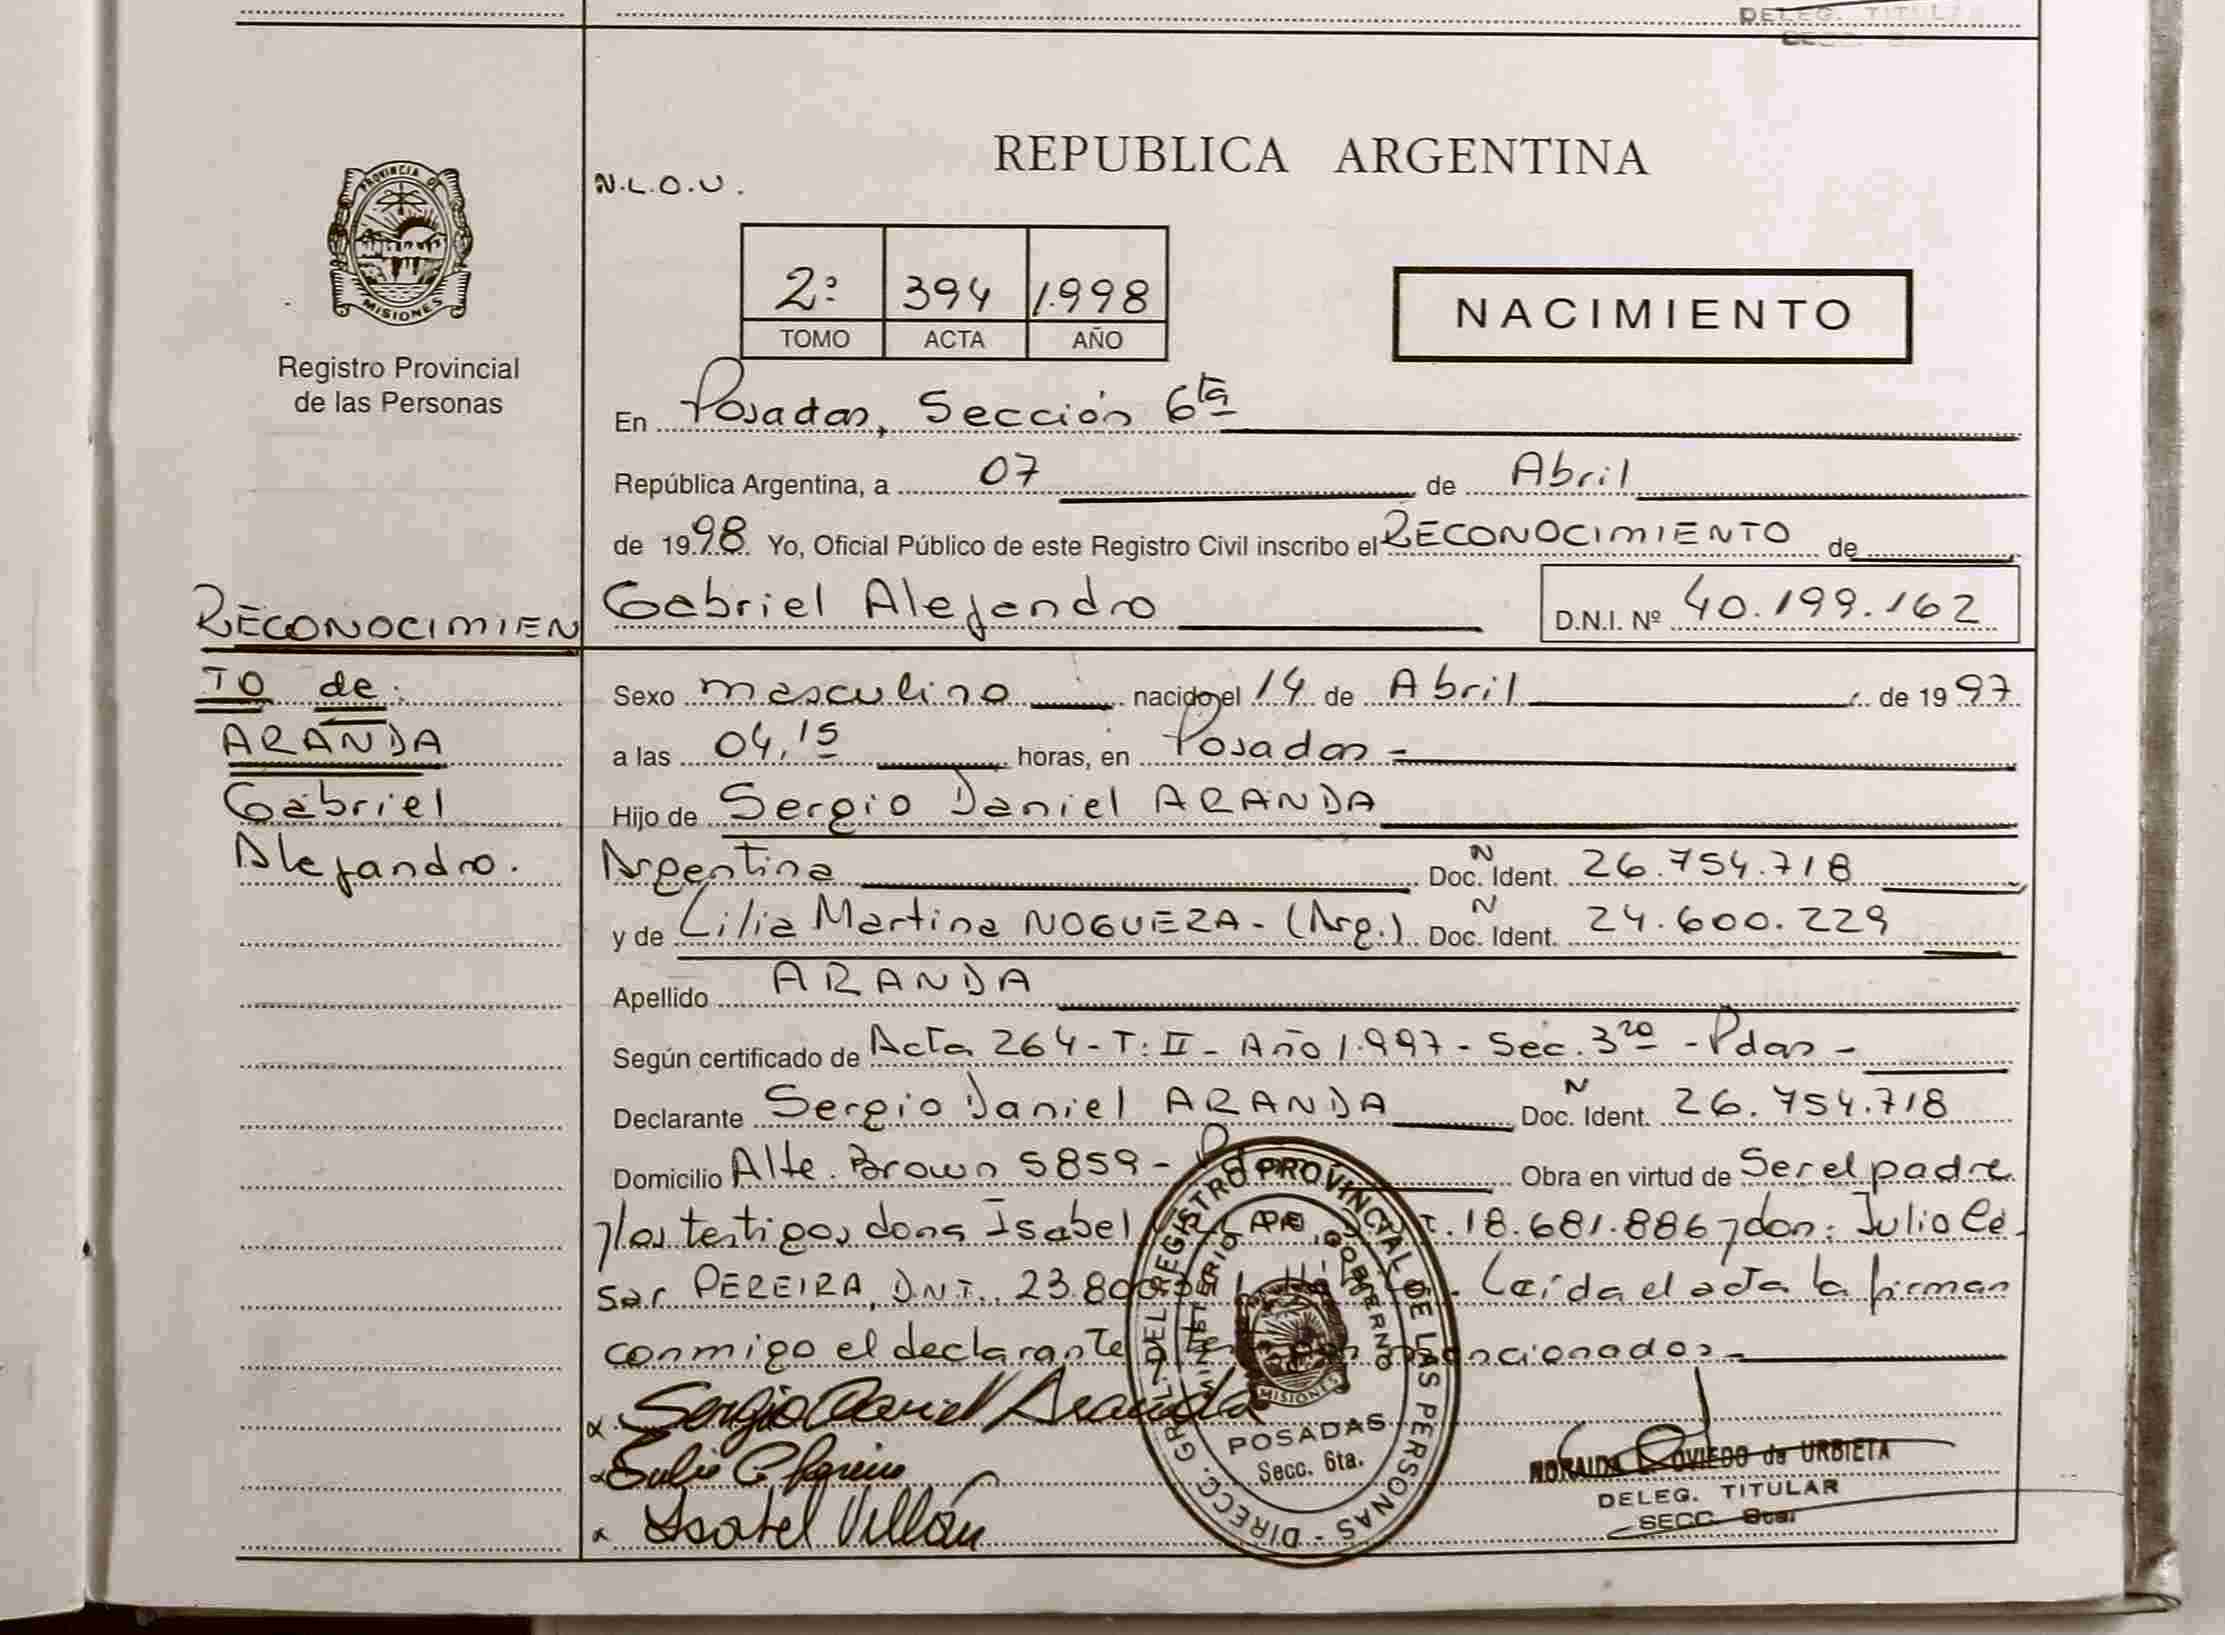 DELEG. TITULA
REPUBLICA ARGENTINA
N.L.O.U.
PROVINCIA DE
MISIONES
2º 394 1.998
TOMO ACTA AÑO
NACIMIENTO
Registro Provincial
de las Personas
En Posadas, Sección 6ta
República Argentina, a 07 de Abril
de 1998. Yo, Oficial Público de este Registro Civil inscribo el RECONOCIMIENTO de
Gabriel Alejandro D.N.I. Nº 40.199.162
RECONOCIMIEN
TO de:
ARANDA
Gabriel
Alejandro.
Sexo masculino nacido el 14 de Abril de 1997
a las 04,15 horas, en Posadas -
Hijo de Sergio Daniel ARANDA
Argentina Doc. N Ident. 26.754.718
y de Lilia Martina NOGUERA - (Arg.) Doc. N Ident. 24.600.229
Apellido ARANDA
Según certificado de Acta 264 - T: II - Año 1.997 - Sec. 3ra - Pdas -
Declarante Sergio Daniel ARANDA Doc. N Ident. 26.754.718
Domicilio Alte. Brown 5859 - Obra en virtud de Ser el padre
y los testigos doña Isabel 18.681.886 y don: Julio Cé
sar PEREIRA, D.N.I. Leída el acta la firman
conmigo el declarante mencionados -
Sergio Daniel Aranda
Julio C. Pereira
Isabel Villán
DIRECC. GRAL. DEL REGISTRO PROVINCIAL DE LAS PERSONAS
MINISTERIO DE GOBIERNO
MISIONES
POSADAS
Secc. 6ta.
OVIEDO de URBIETA
DELEG. TITULAR
SECC. 6ta.